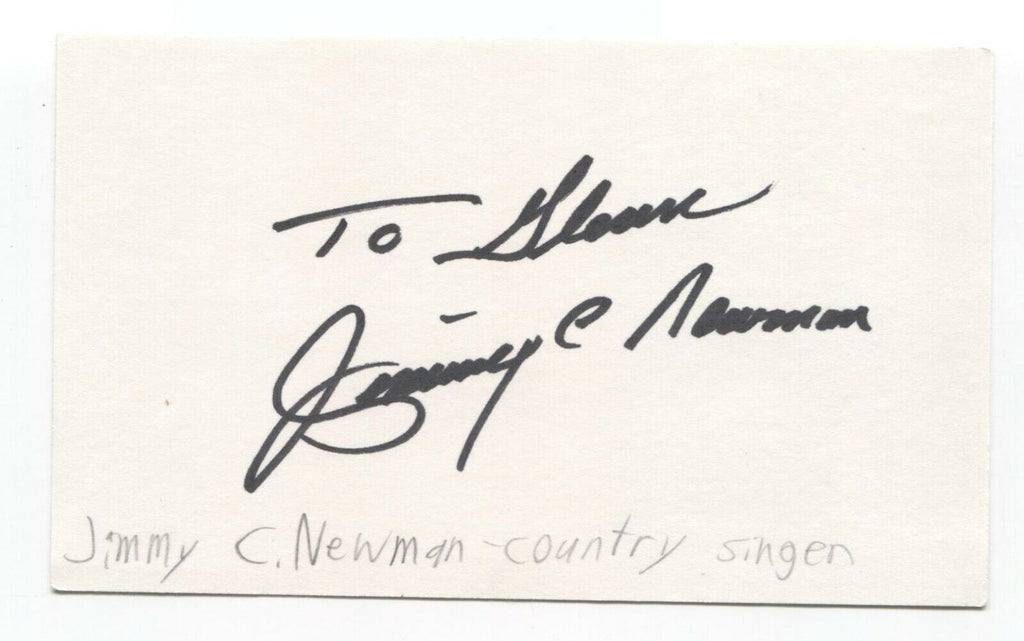 To Glenn
Jimmy C Newman
Jimmy C. Newman - country singer